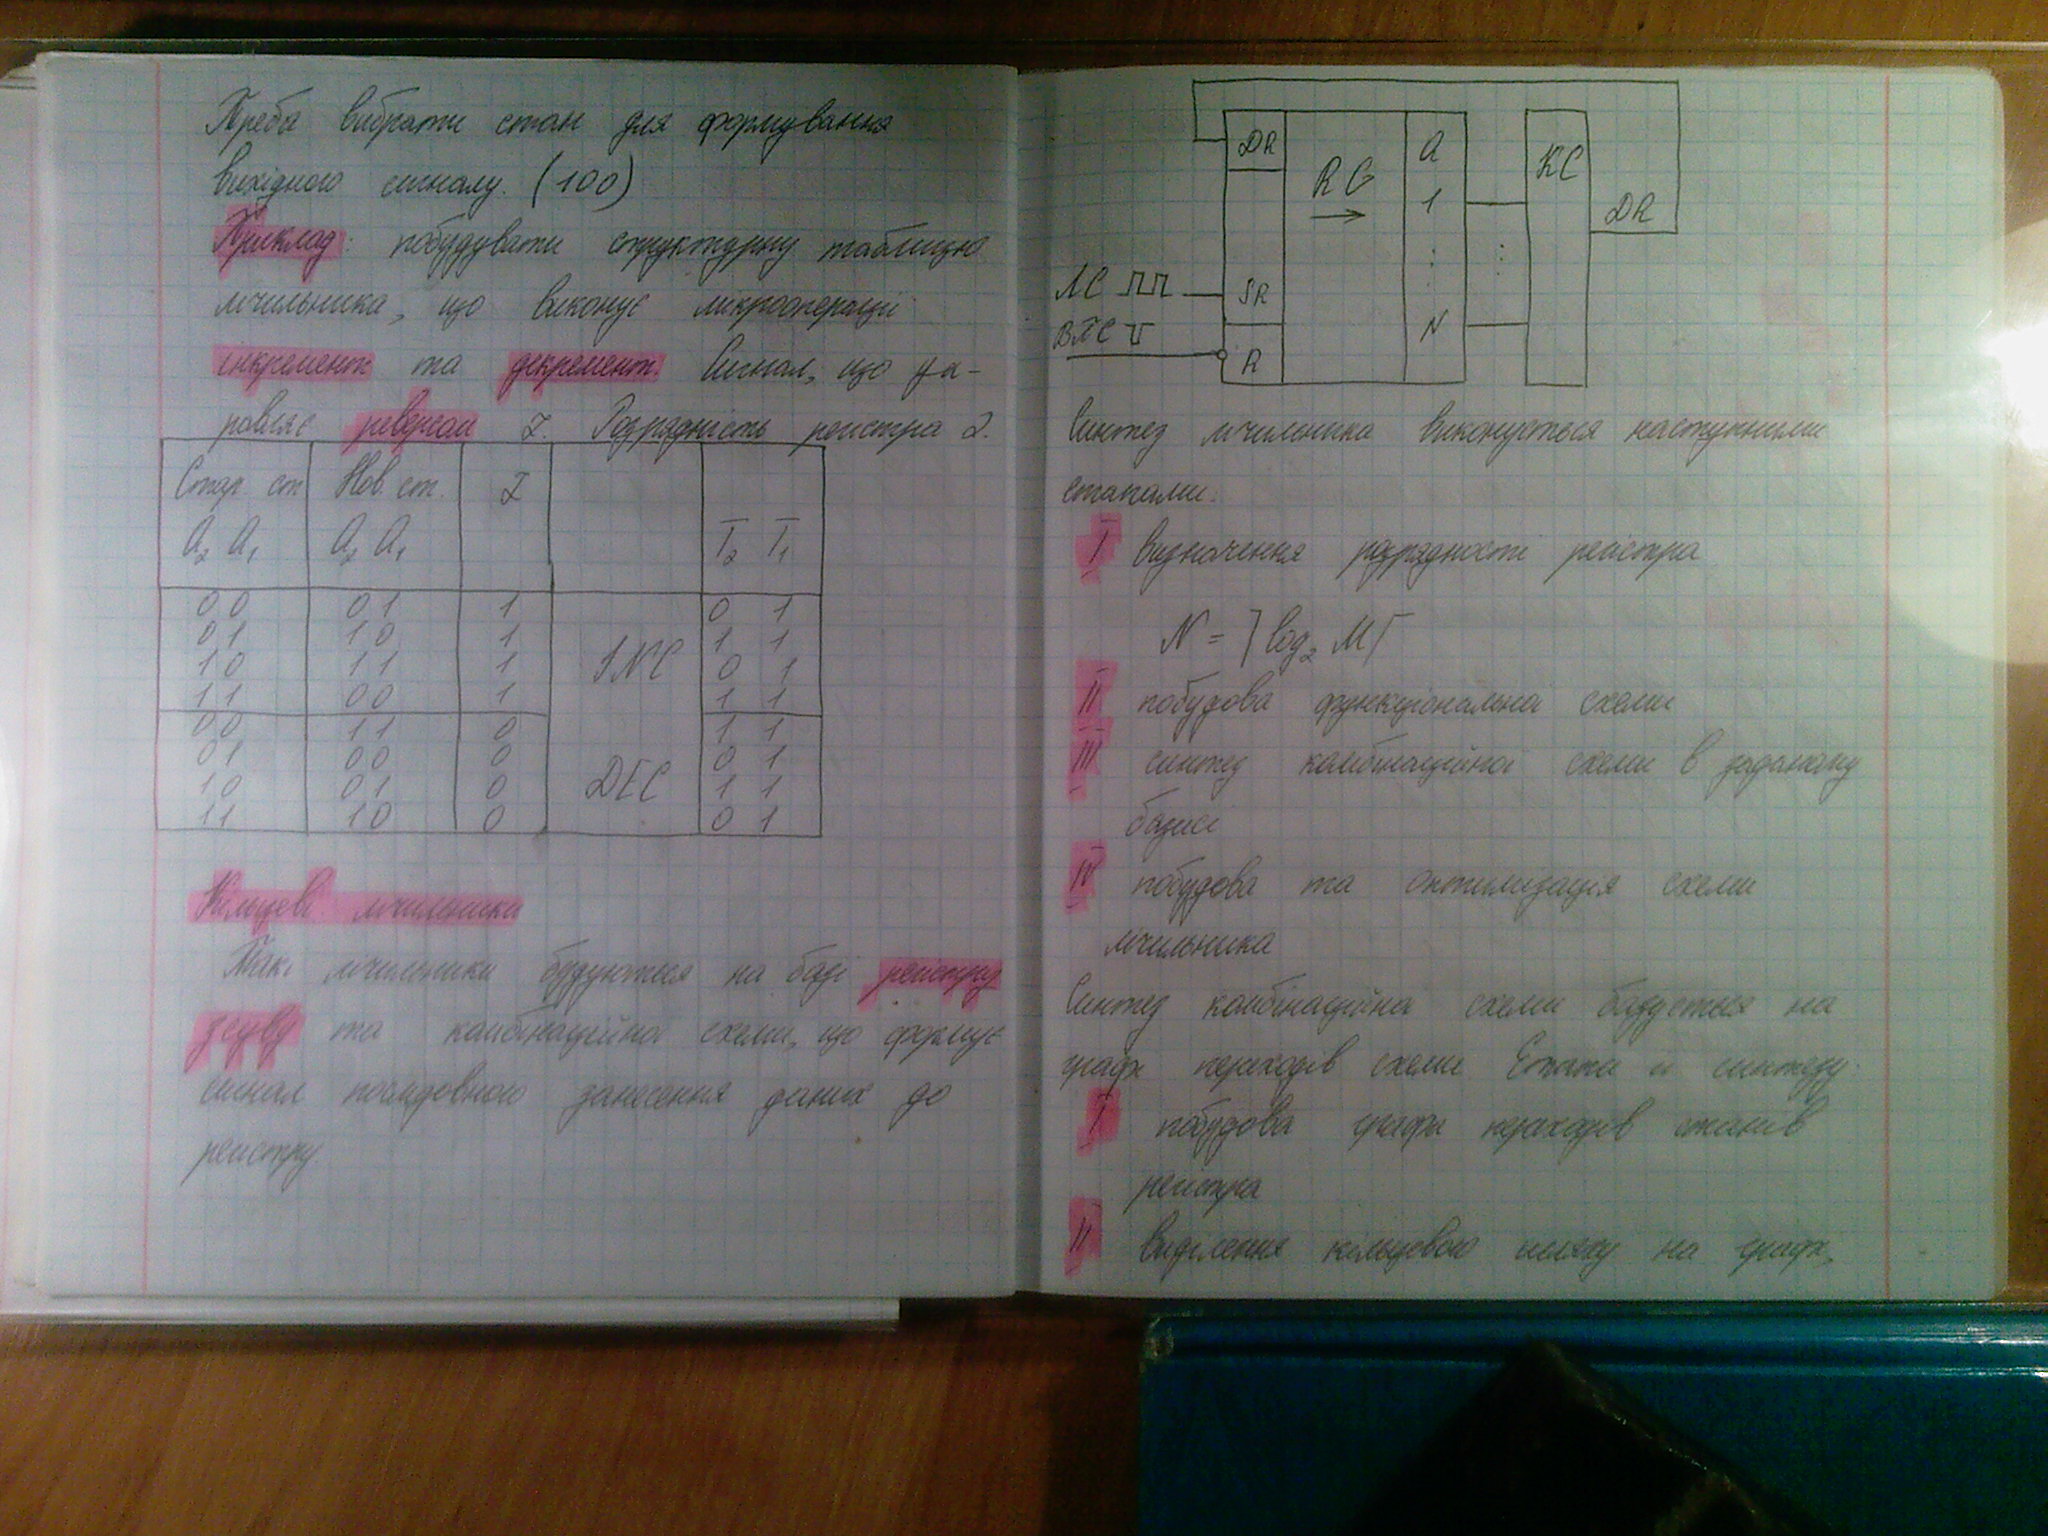 Треба вибрати стан для формування
вихідного сигналу. (100)
Приклад: побудувати структурну таблицю
лічильника, що виконує мікрооперації
інкремент та декремент. Сигнал, що уп-
равляє реверсом Z. Розрядність регістра 2.
Стар. ст Нов. ст. Z
A₂ A₁ A₂ A₁ T₂ T₁
00 01 1 0 1
01 10 1 1 1
10 11 1 INC 0 1
11 00 1 1 1
00 11 0 1 1
01 00 0 0 1
10 01 0 DEC 1 1
11 10 0 0 1
Кільцеві лічильники
Такі лічильники будуються на базі регістру
зсуву та комбінаційної схеми, що формує
сигнал послідовного занесення даних до
регістру
DR RG A KC
1 DR
ЛС SR
N
R
Синтез лічильника виконується наступними
етапами:
I визначення розрядності регістра
N = ]log₂ M[
II побудова функціональної схеми
III синтез комбінаційної схеми в заданому
базисі
IV побудова та оптимізація схеми
лічильника
Синтез комбінаційної схеми базується на
графі переходів схеми Етапи синтезу:
I побудова графа переходів станів
регістра
II виділення кільцевого шляху на графі,